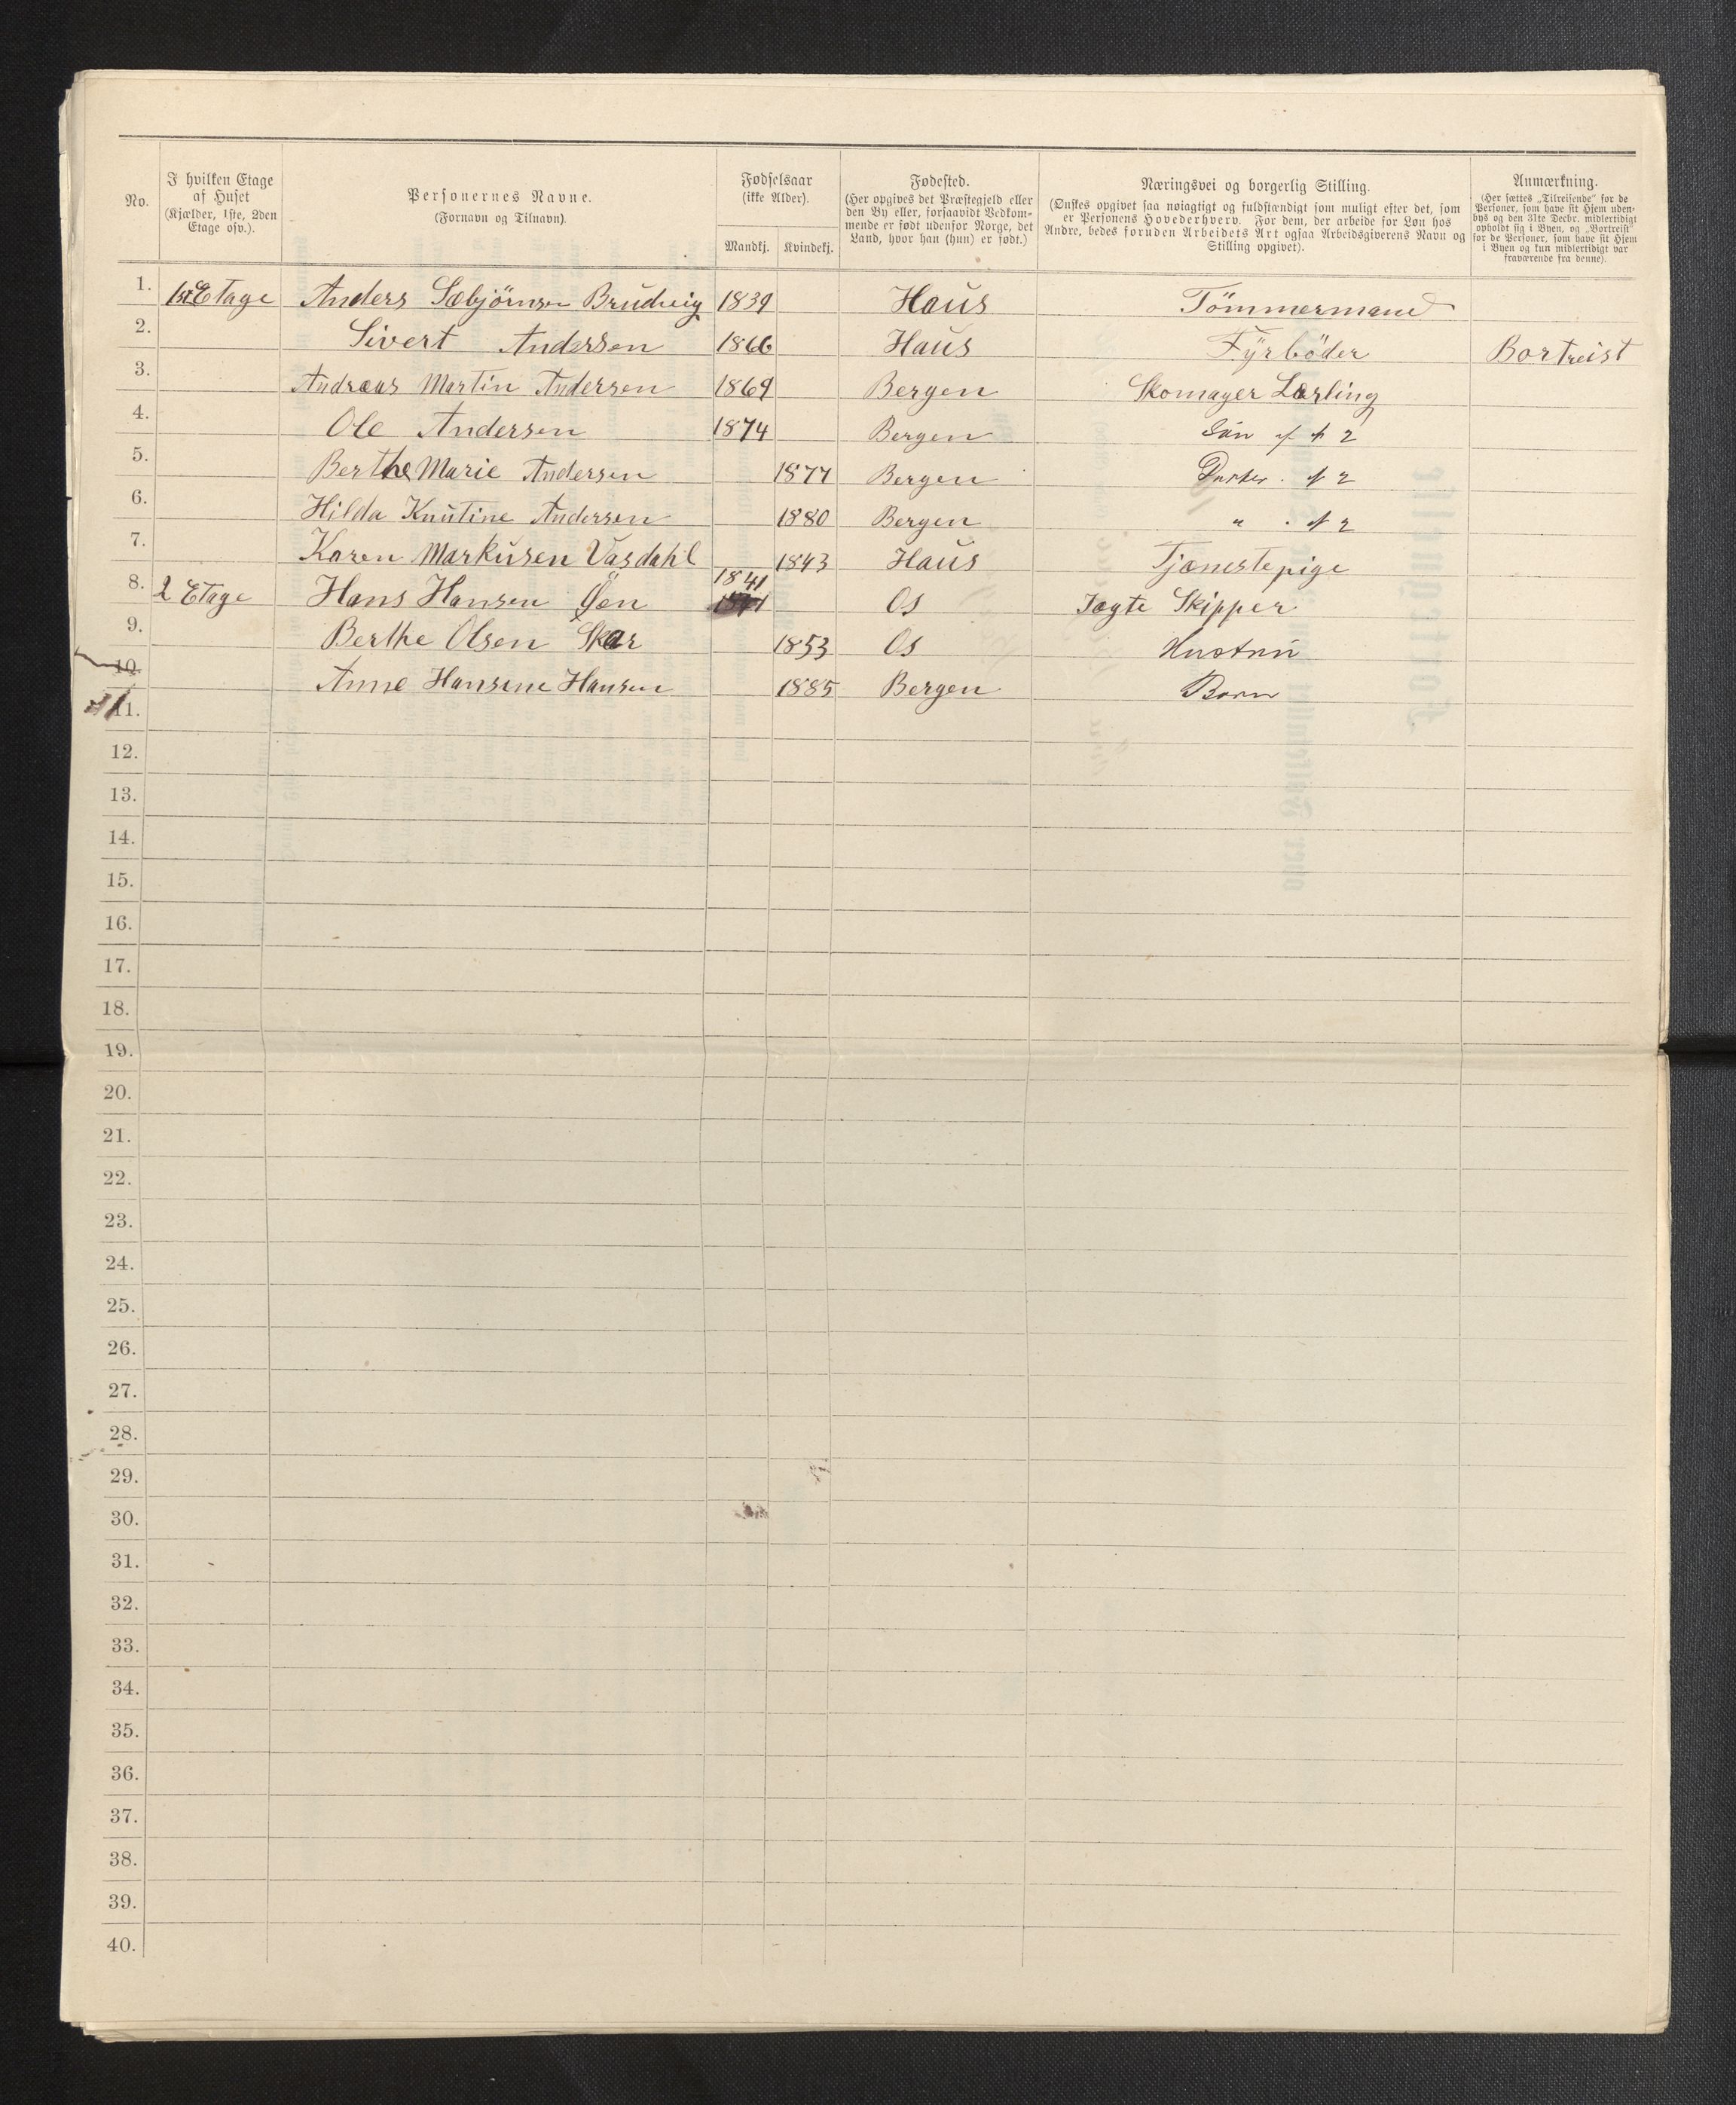 No. I hvilken Etage af Huset (Kjælder, 1ste, 2den Etage osv.). Personernes Navne. (Fornavn og Tilnavn). Fødselsaar (ikke Alder). Mandkj. Kvindekj. Fødested. (Her opgives det Præstegjeld eller den By eller, forsaavidt Vedkommende er født udenfor Norge, det Land, hvor han (hun) er født.) Næringsvei og borgerlig Stilling. (Ønskes opgivet saa nøiagtigt og fuldstændigt som muligt efter det, som er Personens Hovederhverv. For dem, der arbeide for Løn hos Andre, bedes foruden Arbeidets Art ogsaa Arbeidsgiverens Navn og Stilling opgivet). Anmærkning. (Her sættes „Tilreisende" for de Personer, som have sit Hjem udenbys og den 31te Decbr. midlertidigt opholdt sig i Byen, og „Bortreist" for de Personer, som have sit Hjem i Byen og kun midlertidigt var fraværende fra denne).
1. 1st Etage Anders Sæbjörnsen Brudvig 1839 Haus Tömmermand
2. Sivert Andersen 1866 Haus Fyrböder Bortreist
3. Andreas Martin Andersen 1869 Bergen Skomager Lærling
4. Ole Andersen 1874 Bergen Sön af 2
5. Berthe Marie Andersen 1877 Bergen Datter af 2
6. Hilda Knutine Andersen 1880 Bergen " af 2
7. Karen Markusen Vasdahl 1843 Haus Tjænestepige
8. 2 Etage Hans Hansen Øen 1841 Os Jægte Skipper
9. Berthe Olsen Skar 1853 Os Hustru
10. Anne Hansine Hansen 1885 Bergen Barn
11.
12.
13.
14.
15.
16.
17.
18.
19.
20.
21.
22.
23.
24.
25.
26.
27.
28.
29.
30.
31.
32.
33.
34.
35.
36.
37.
38.
39.
40.